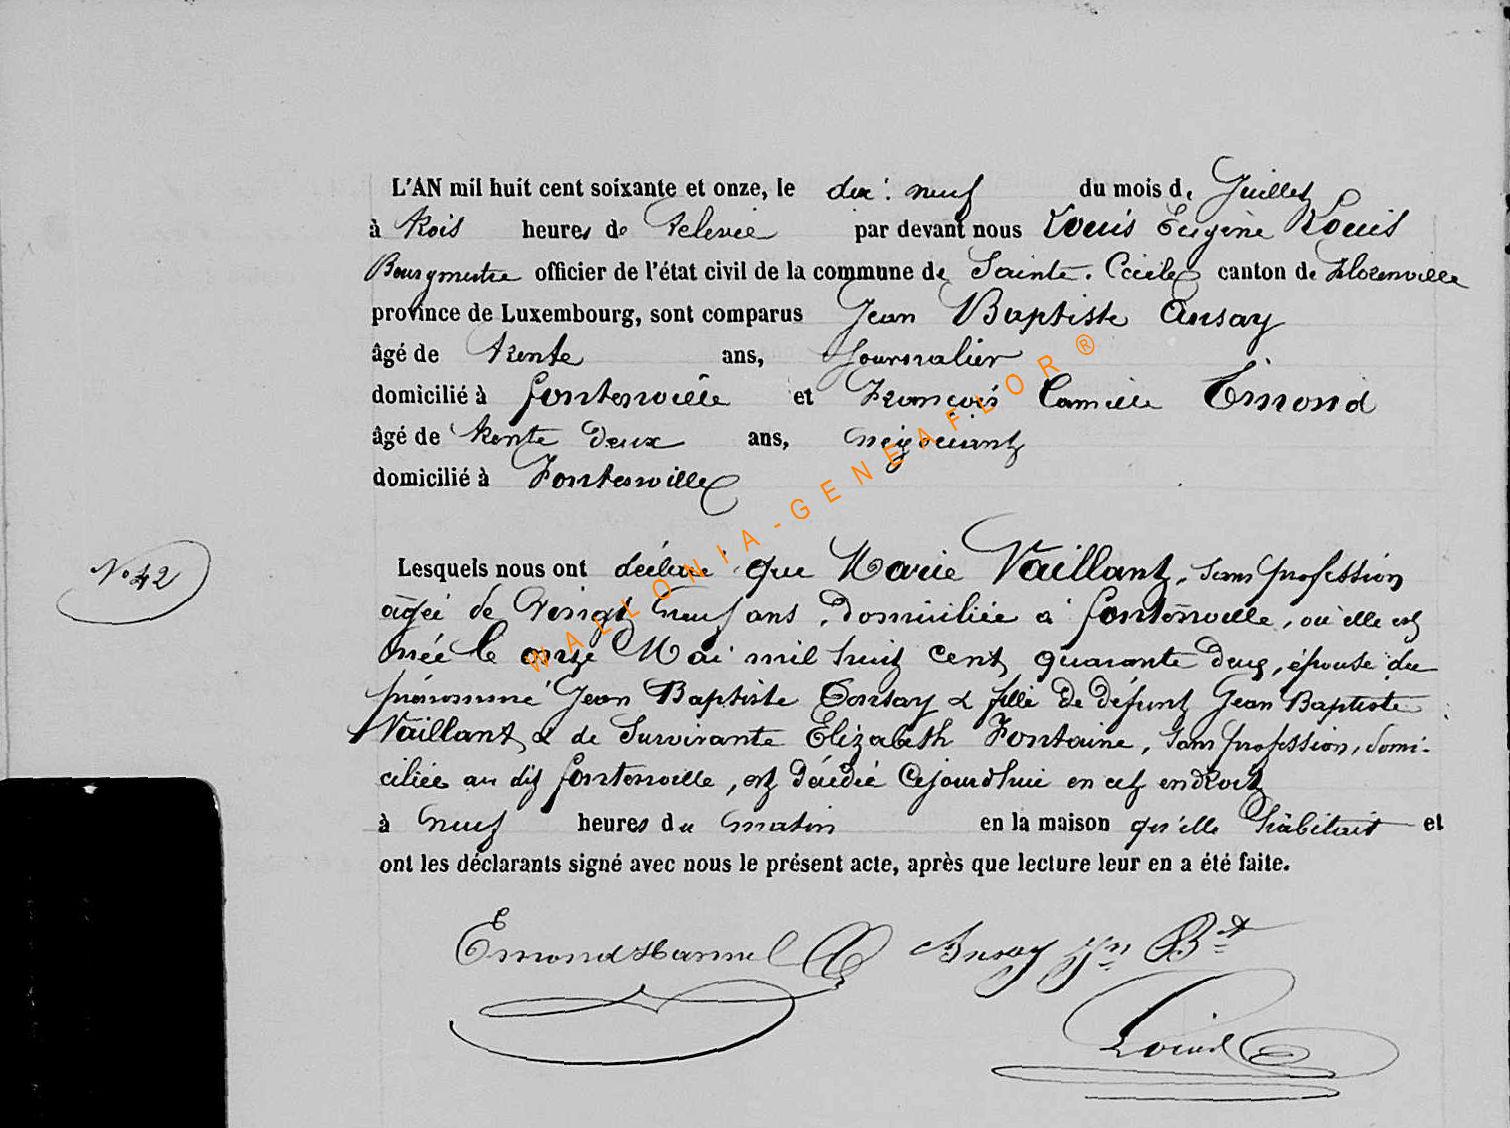 L'AN mil huit cent soixante et onze, le dix-neuf du mois de Juillet
à trois heures de relevée par devant nous Louis Eugène Louis
Bourgmestre officier de l'état civil de la commune de Sainte-Cécile canton de Florenville
province de Luxembourg, sont comparus Jean Baptiste Ansay
âgé de trente ans, Journalier
domicilié à fontenoille et François Camille Emond
âgé de trente deux ans, négociant
domicilié à Fontenoille
Lesquels nous ont déclaré que Marie Vaillant, sans profession
âgée de Vingt neuf ans, Domiciliée à fontenoille, où elle est
née le onze Mai mil huit cent quarante deux, épouse du
prénommé Jean Baptiste Ansay & fille de défunt Jean Baptiste
Vaillant & de Survivante Elizabeth Fontaine, sans profession, domi-
ciliée au dit fontenoille, est décédée Cejourd'hui en cet endroit
à neuf heures du matin en la maison qu'elle habitait et
ont les déclarants signé avec nous le présent acte, après que lecture leur en a été faite.
N° 42
Emond Hannel Ansay Jn Bte
Louis
WALLONIA-GENEAFLOR ®